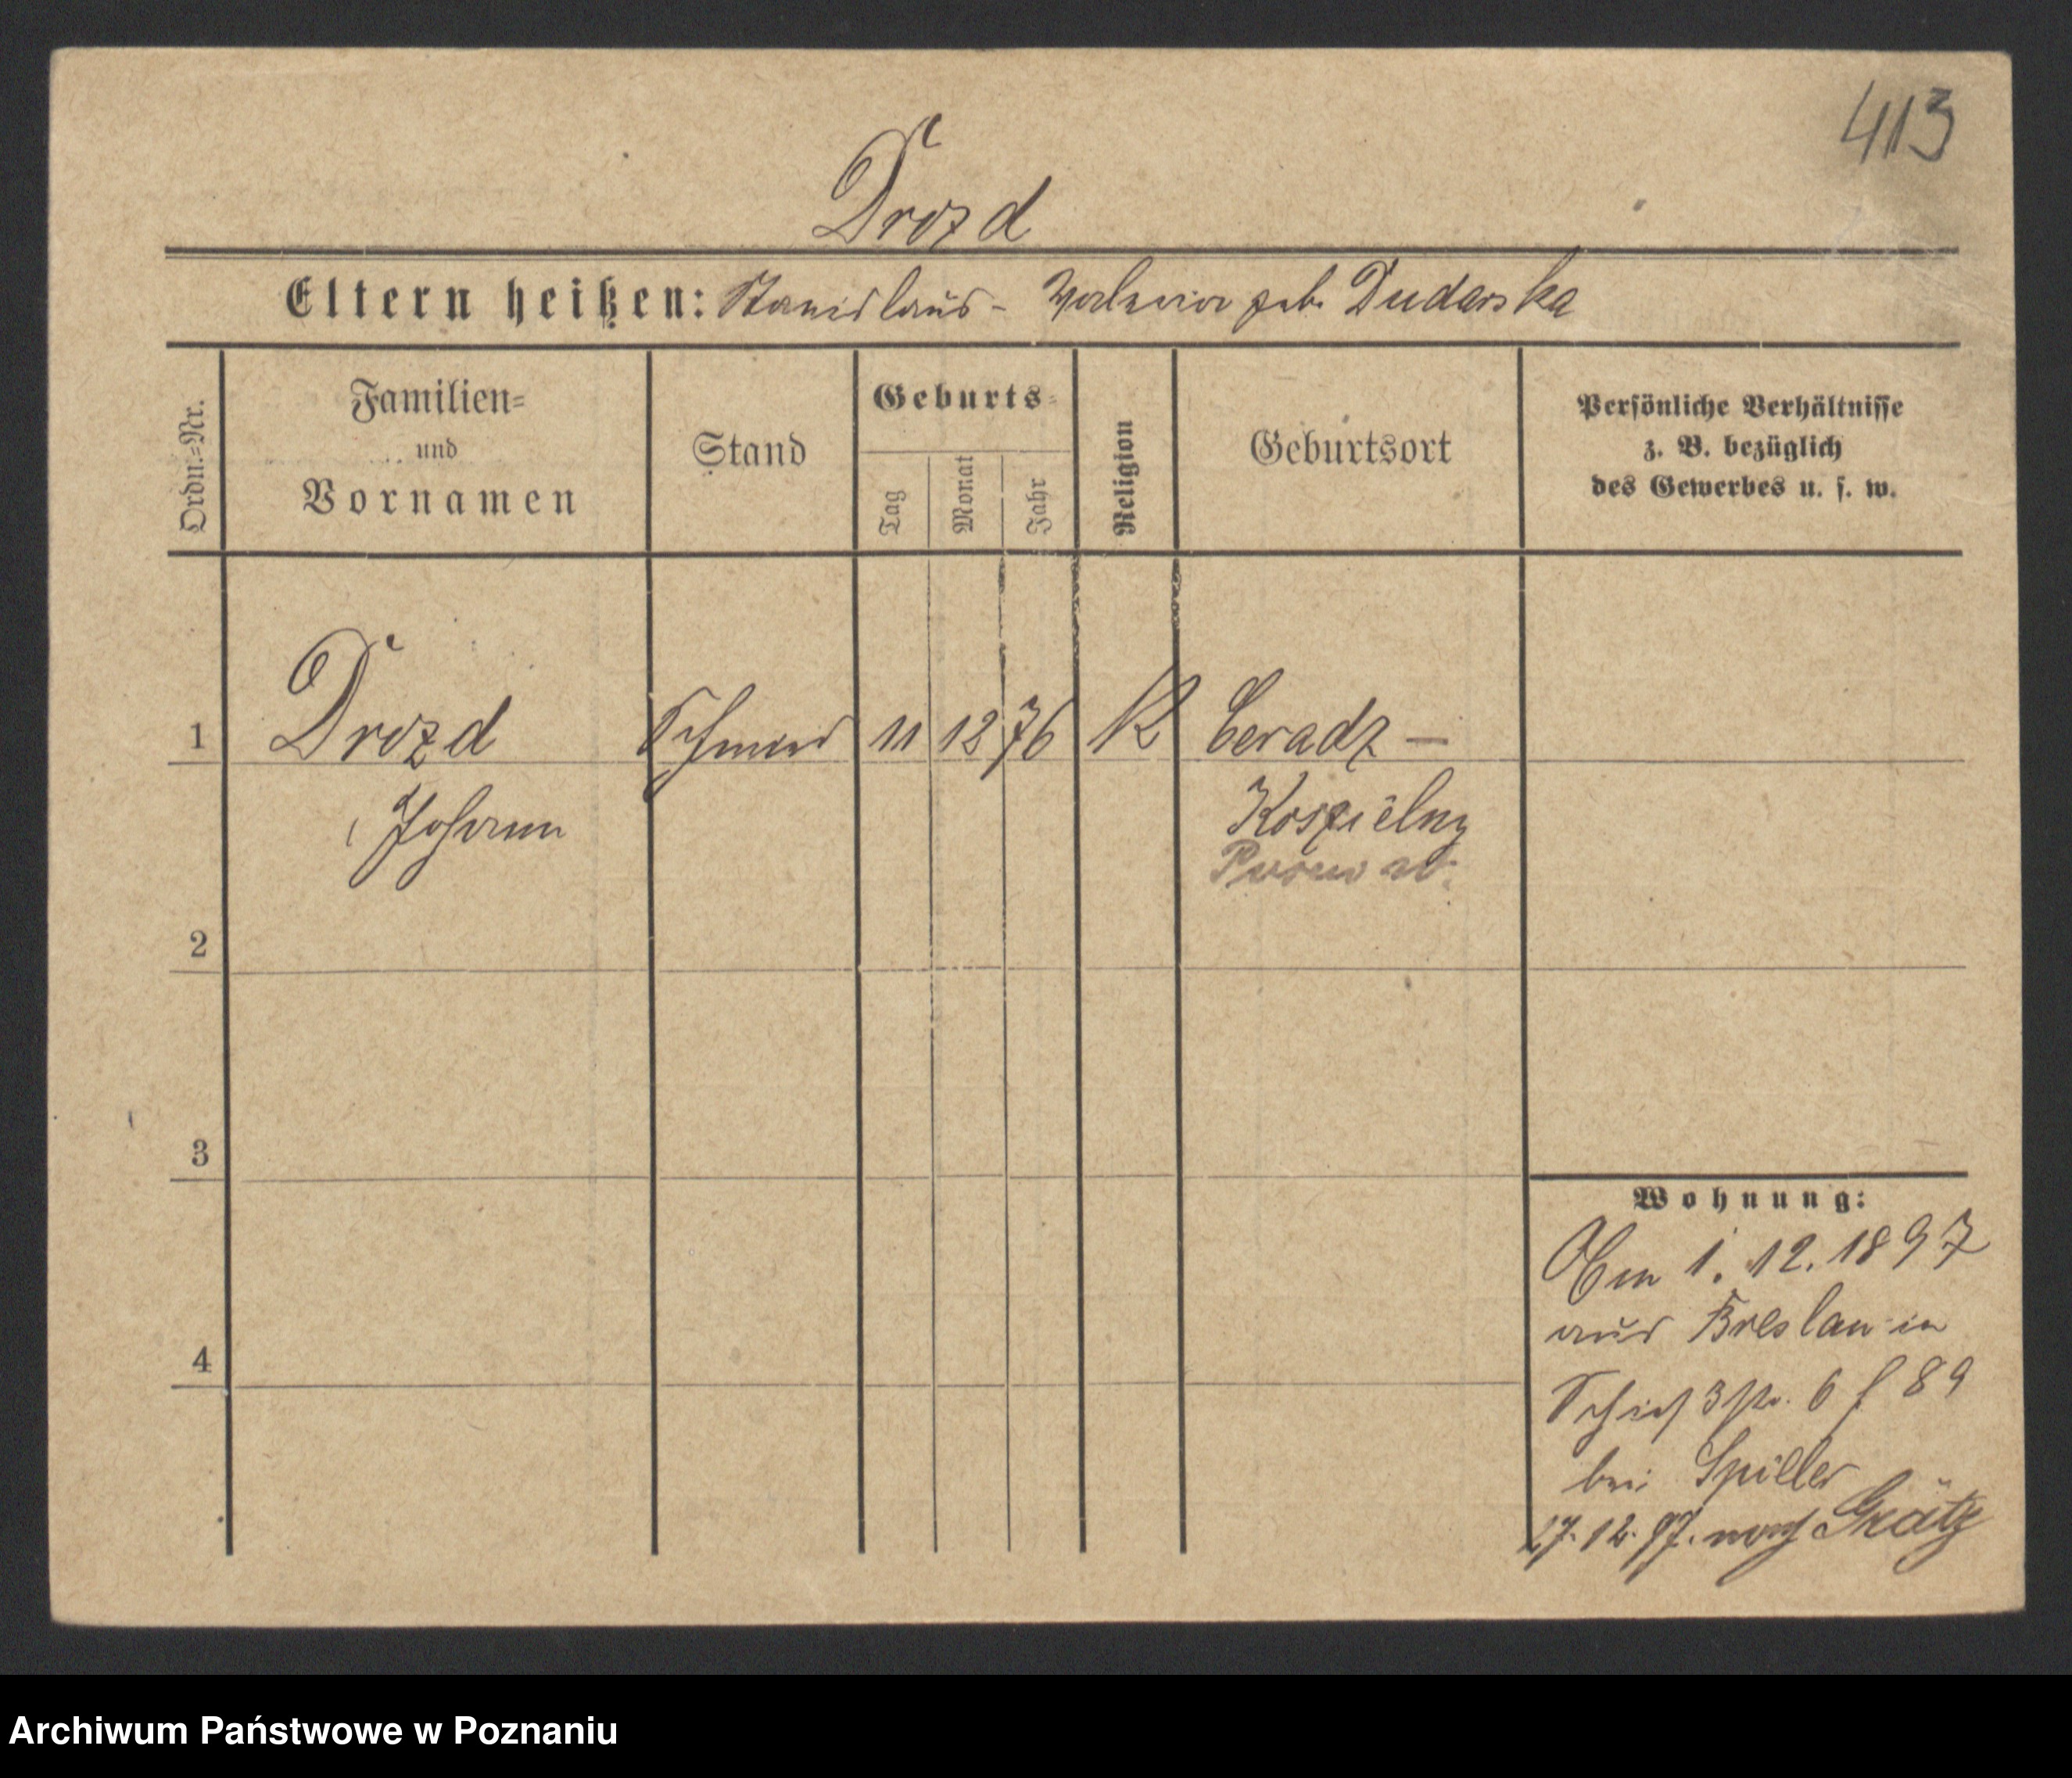 413
Drozd
Eltern heißen: Stanislaus - Valeria geb. Dudarska
Ordn.=Nr.
Familien=
und
Vornamen
Stand
Geburts=
Tag
Monat
Jahr
Religion
Geburtsort
Persönliche Verhältnisse
z. B. bezüglich
des Gewerbes u. s. w.
1 Drozd Schmied 11 12 76 K Ceradz -
Johann
Koszielny
Posen W.
2
3
4
Wohnung:
Am 1. 12. 1897
aus Breslau in
89
bei Spiller
27. 12. 97. nach Grätz
Archiwum Państwowe w Poznaniu